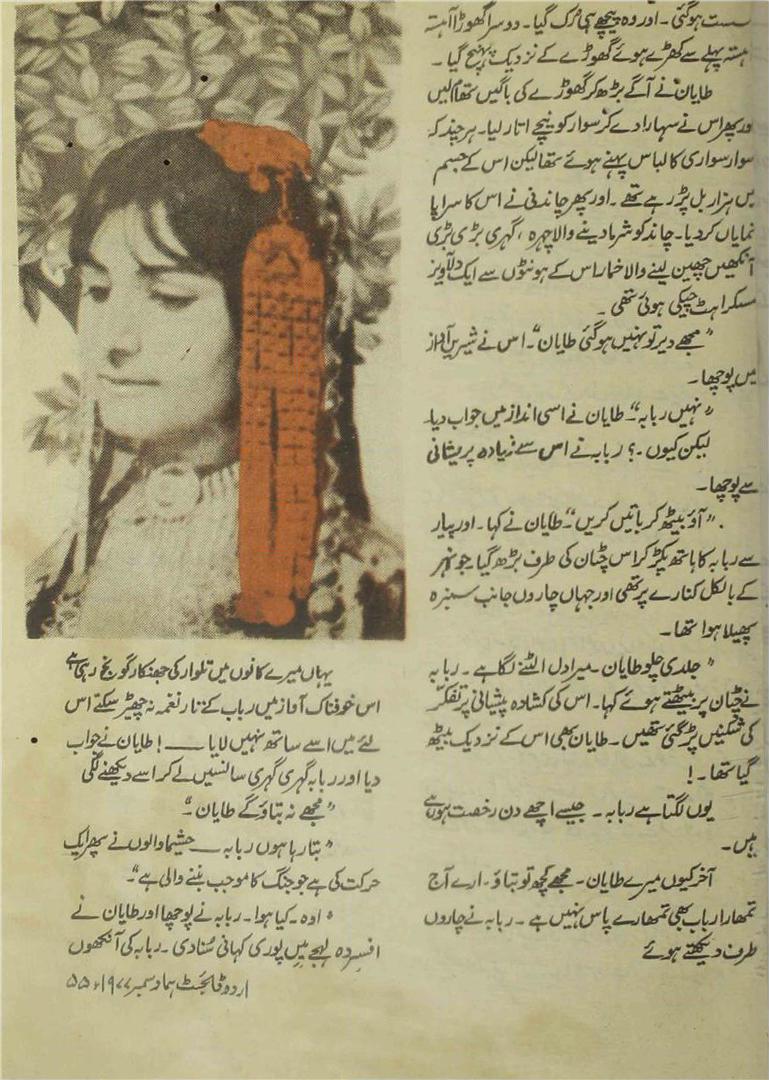 سست ہوگئی ۔ اور وہ پیچھے ہی رُک گیا ۔ دوسرا گھوڑا آہستہ
ہستہ پہلے سے کھڑے ہوئے گھوڑے کے نزدیک پہنچ گیا ۔
طایان نے آگے بڑھ کر گھوڑے کی باگیں تھام لیں
اور پھر اس نے سہارا دے کر سوار کو نیچے اتار لیا ۔ ہر چند کہ
سوار سواری کا لباس پہنے ہوئے تھا لیکن اس کے جسم
میں ہزار بل پڑ رہے تھے ۔ اور پھر چاندنی نے اس کا سراپا
نمایاں کردیا ۔ چاند کو شرما دینے والا چہرہ ، گہری بڑی بڑی
آنکھیں چھین لینے والا خمار اس کے ہونٹوں سے ایک دلآویز
مسکراہٹ چپکی ہوئی تھی ۔
" مجھے دیر تو نہیں ہوگئی طایان " ۔ اس نے شیریں آواز
میں پوچھا ۔
" نہیں ربابہ " ۔ طایان نے اسی انداز میں جواب دیا۔
لیکن کیوں ۔؟ ربابہ نے اس سے زیادہ پریشانی
سے پوچھا ۔
" آؤ بیٹھ کر باتیں کریں " ۔ طایان نے کہا ۔ اور پیار
سے ربابہ کا ہاتھ پکڑ کر اس چٹان کی طرف بڑھ گیا جو نہر
کے بالکل کنارے پر تھی اور جہاں چاروں جانب سبزہ
پھیلا ہوا تھا ۔
" جلدی چلو طایان ۔ میرا دل الٹنے لگا ہے ۔ ربابہ
نے چٹان پر بیٹھتے ہوئے کہا ۔ اس کی کشادہ پیشانی پر تفکر
کی شکنیں پڑ گئی تھیں ۔ طایان بھی اس کے نزدیک بیٹھ
گیا تھا ۔ !
یوں لگتا ہے ربابہ ۔ جیسے اچھے دن رخصت ہو رہے
ہیں ۔
آخر کیوں میرے طایان ۔ مجھے کچھ تو بتاؤ ۔ ارے آج
تمہارا رباب بھی تمہارے پاس نہیں ہے ۔ ربابہ نے چاروں
طرف دیکھتے ہوئے
یہاں میرے کانوں میں تلوار کی جھنکار گونج رہی ہے
اس خوفناک آواز میں رباب کے تار نغمہ نہ چھیڑ سکتے اس
لئے میں اسے ساتھ نہیں لایا ـــــ ! طایان نے جواب
دیا اور ربابہ گہری گہری سانسیں لے کر اسے دیکھنے لگی
" مجھے نہ بتاؤ گے طایان ۔"
" بتا رہا ہوں ربابہ ـــــ حشیما والوں نے پھر ایک
حرکت کی ہے جو جنگ کا موجب بننے والی ہے " ۔
" اوہ ۔ کیا ہوا ۔ ربابہ نے پوچھا اور طایان نے
افسردہ لہجے میں پوری کہانی سُنادی ۔ ربابہ کی آنکھوں
اردو ڈائجسٹ ہما دسمبر ۱۹۷۷ء ۵۵